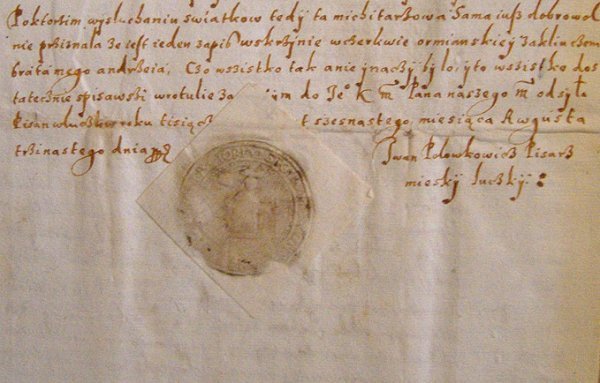 Poktorim wysłuchaniu swiatkow tedy ta michitarzowa Sama iusz dobrowol
nie prziznała ze iest ieden zapis wskrzynie wczerkwie ormianskiey zaklucem
brata mego andrzeia, Czo wszistko tak anie jnaczy było, yto wszistko dos
tatecznie spisawszi wrotulie za do Je° K M Pana naszego M odsyła
Pisan włucku roku tisiącz t szesnastego miesiąca Awgusta
trzinastego dnia
Iwan Połowkowicz Pisarz
mieskij łuczkij